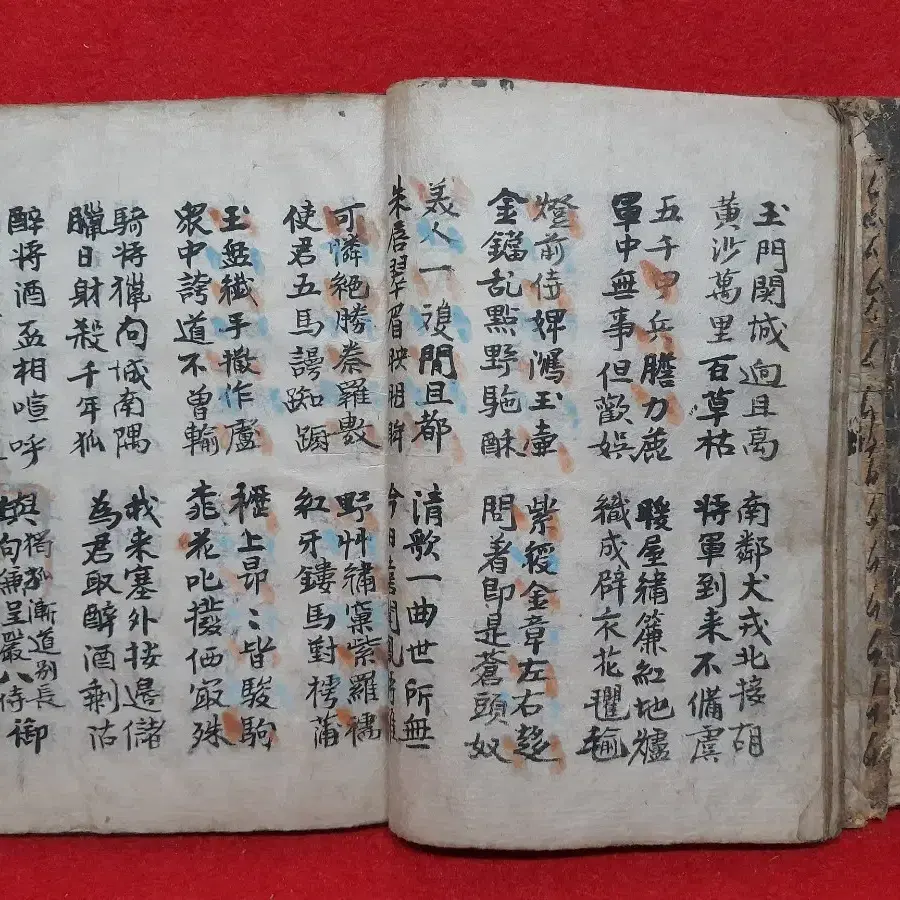 玉門関城逈且
黄沙萬里百草枯
南鄰犬戎北接胡
將軍到來不備虞
五千甲兵膽力麁
軍中無事但歡娛
暖屋繡簾紅地爐
織成辟衣花氍毹
燈前侍婢瀉玉壺
金鐺乱點野駞酥
紫綬金章左右趍
問著即是蒼頭奴
美人一雙閒且都
朱唇翠眉映明眸
清歌一曲世所無
今日喜聞鳳將雛
可憐絕勝秦羅敷
使君五馬謾踟蹰
野艸繡窠紫羅襦
紅牙鏤馬對樗蒲
玉盤纖手撒作盧
衆中誇道不曾輸
櫪上昂〻皆駿駒
桃花叱撥価最殊
騎將獵向城南隅
臘日射殺千年狐
我來塞外按邊儲
為君取醉酒剩沽
醉將酒盃相喧呼
與獨孤漸道别長
句兼呈嚴八侍御